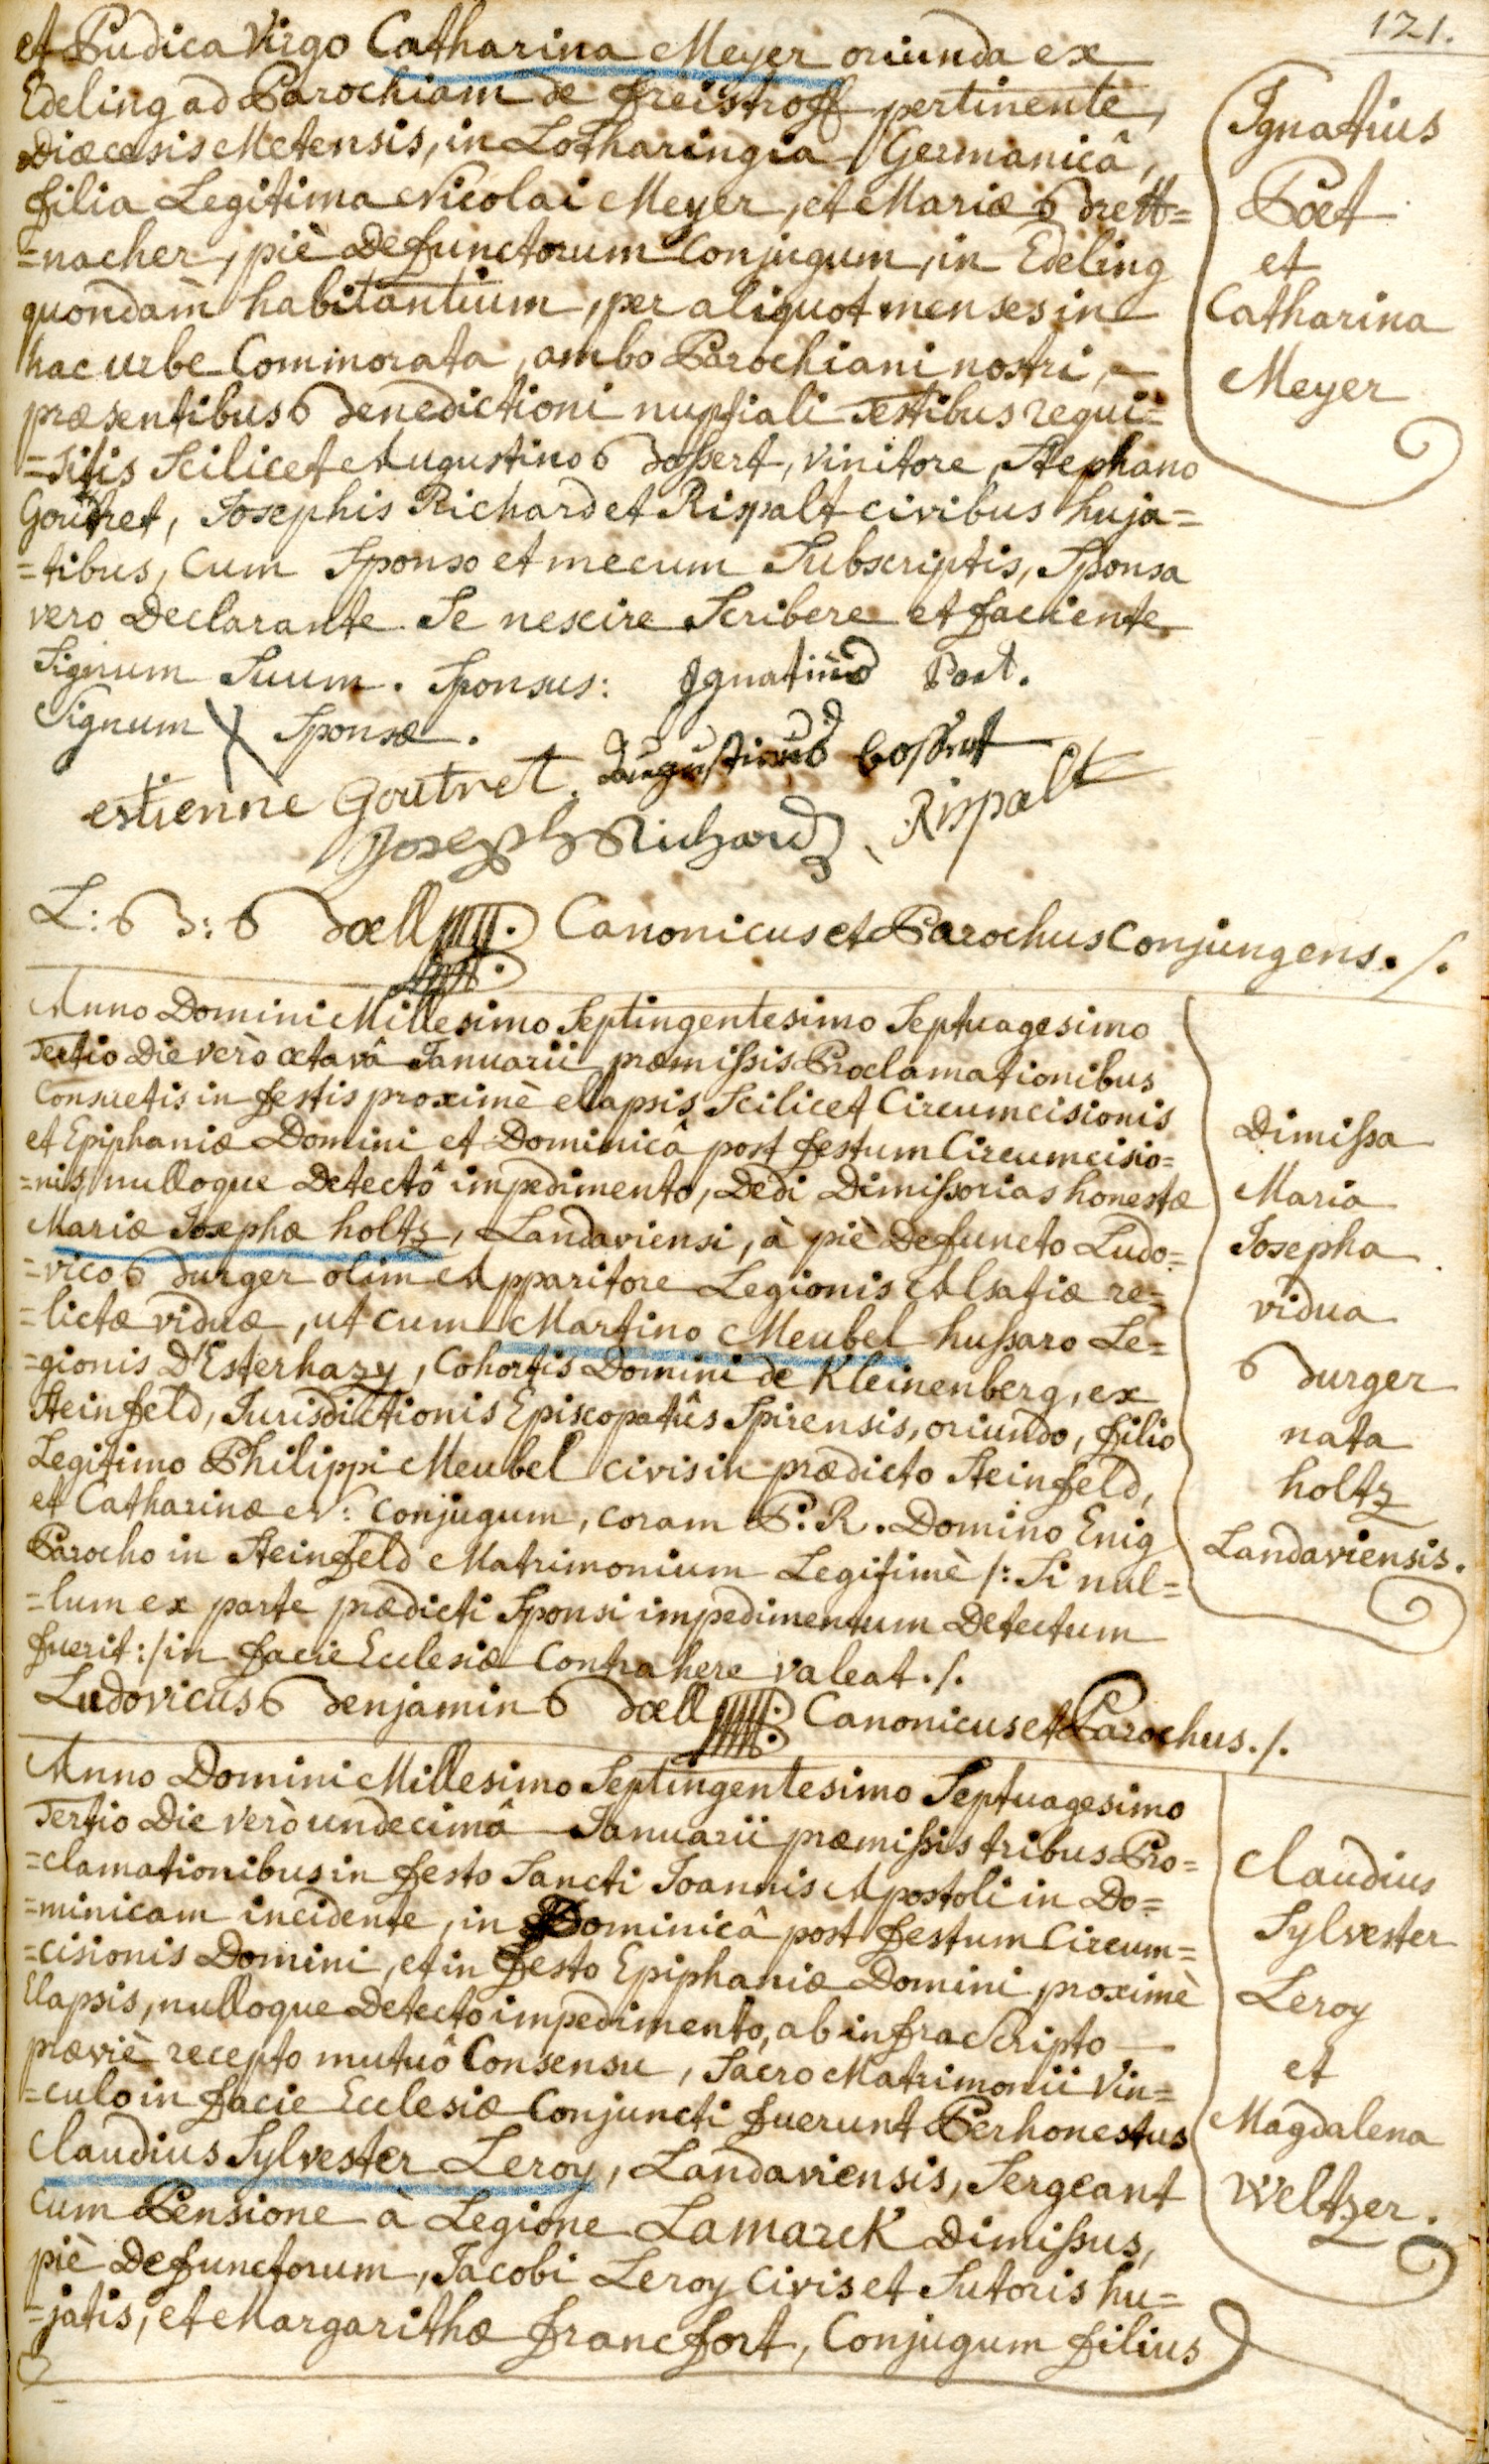 121.
et Pudica Virgo Catharina Meyer oriunda ex
Edeling ad Parochiam de freistroff pertinente,
Diœcesis Metensis, in Lotharingia Germanicâ,
filia Legitima Nicolai Meyer, et Mariæ Brett=
=nacher, piè Defunctorum Conjugum, in Edeling
quondam habitantium, per aliquot menses in
hac urbe Commorata, ambo Parochiani nostri,
præsentibus Benedictioni nuptiali Testibus requi=
=sitis Scilicet Augustino Bossert, vinitore, Stephano
Goutret, Josephis Richard et Rispalt civibus huja=
=tibus, Cum Sponso et mecum Subscriptis, Sponsa
vero Declarante Se nescire Scribere et faciente
Signum Suum. Sponsus: Ignatius Poet.
Signum X Sponsæ.
estienne Goutret. Augustinus bossert
Joseph Richard, Rispalt
L: B: Bœll Canonicus et Parochus Conjungens./.
Ignatius
Poet
et
Catharina
Meyer
Anno Domini Millesimo Septingentesimo Septuagesimo
Tertio Die verò octavâ Januarii præmissis Proclamationibus
Consuetis in festis proximè elapsis Scilicet Circumcisionis
et Epiphaniæ Domini et Dominicâ post festum Circumcisio=
=nis, nulloque Detectô impedimento, Dedi Dimissorias honestæ
Mariæ Josephæ holtz, Landaviensi, à piè Defuncto Ludo=
=vico Burger olim Apparitore Legionis Alsatiæ re=
=lictæ viduæ, ut cum Martino Meubel hussaro Le=
=gionis D'Esterhazy, Cohortis Domini de Kleinenberg, ex
Steinfeld, Jurisdictionis Episcopatûs Spirensis, oriundo, filio
Legitimo Philippi Meubel civis in prædicto Steinfeld,
et Catharinæ N: Conjugum, coram P. R. Domino Enig
Parocho in Steinfeld Matrimonium Legitimè /: Si nul=
=lum ex parte prædicti Sponsi impedimentum Detectum
fuerit :/ in facie Ecclesiæ Contrahere valeat./.
Ludovicus Benjamin Bœll Canonicus et Parochus./.
Dimissa
Maria
Josepha
vidua
Burger
nata
holtz
Landaviensis.
Anno Domini Millesimo Septingentesimo Septuagesimo
Tertio Die verò undecimâ Januarii præmissis tribus Pro=
=clamationibus in festo Sancti Joannis Apostoli in Do=
=minicam incidente, in Dominicâ post festum Circum=
=cisionis Domini, et in festo Epiphaniæ Domini proximè
Elapsis, nulloque Detecto impedimento, ab infra Scripto
præviè recepto mutuô Consensu, Sacro Matrimonii Vin=
=culo in facie Ecclesiæ Conjuncti fuerunt Perhonestus
Claudius Sylvester Leroy, Landaviensis, Sergeant
Cum Pensione à Legione Lamarck Dimissus,
piè Defunctorum, Jacobi Leroy Civis et Sutoris hu=
=jatis, et Margarithæ francfort, Conjugum filius
Claudius
Sylvester
Leroy
et
Magdalena
Weltzer.